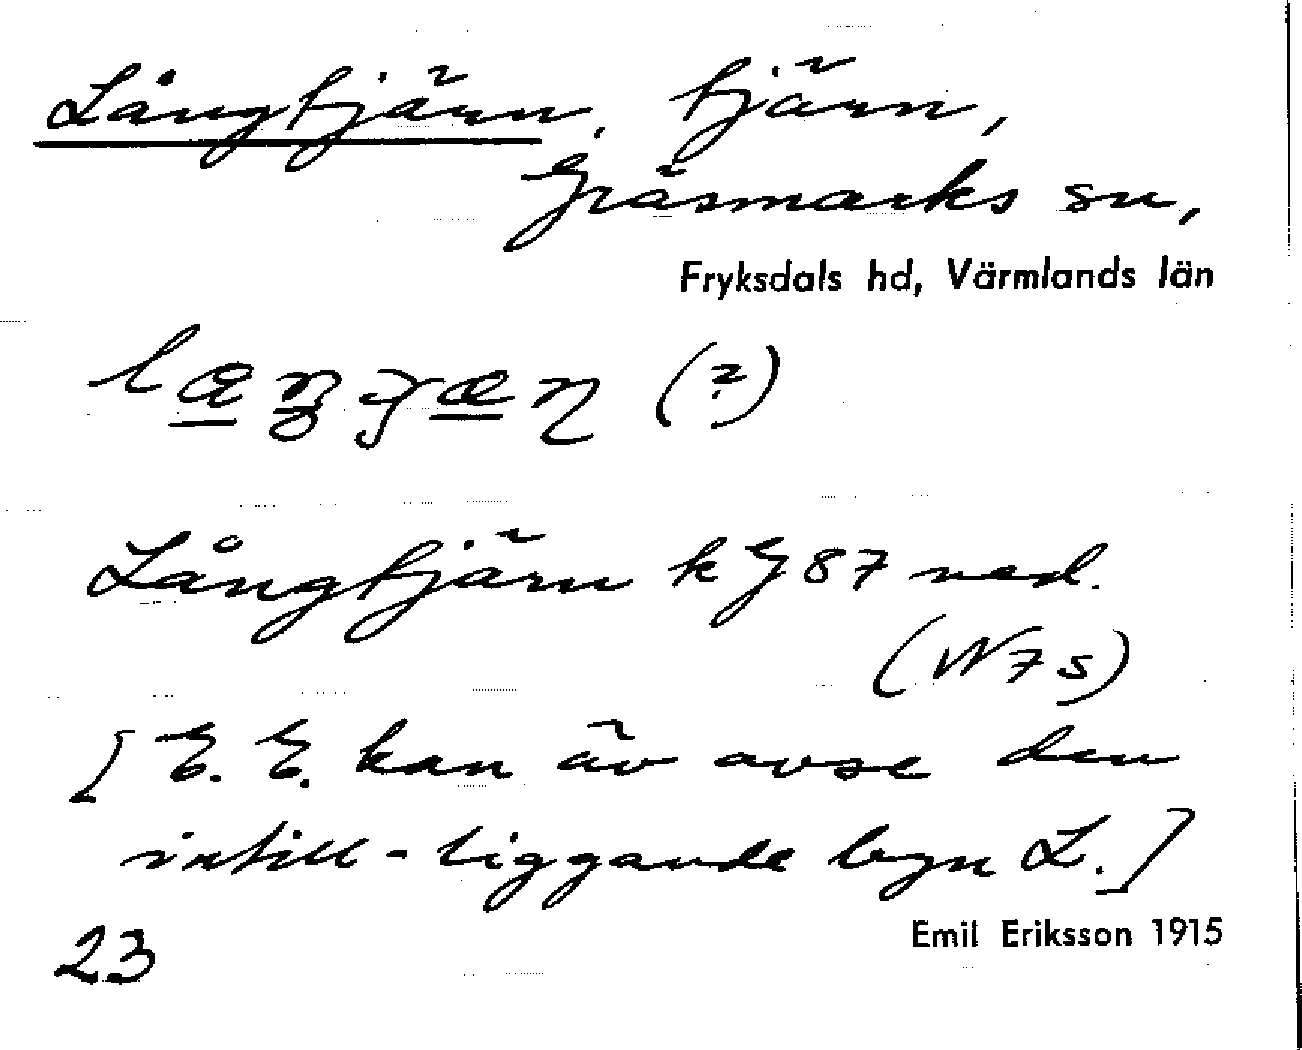 Långtjärn, tjärn,
Gräsmarks sn,
Fryksdals hd, Värmlands län
(?)
Långtjärn k G 87 ned.
(W7s)
[E. E. kan äv avse den
intill-liggande byn L.]
23
Emil Eriksson 1915